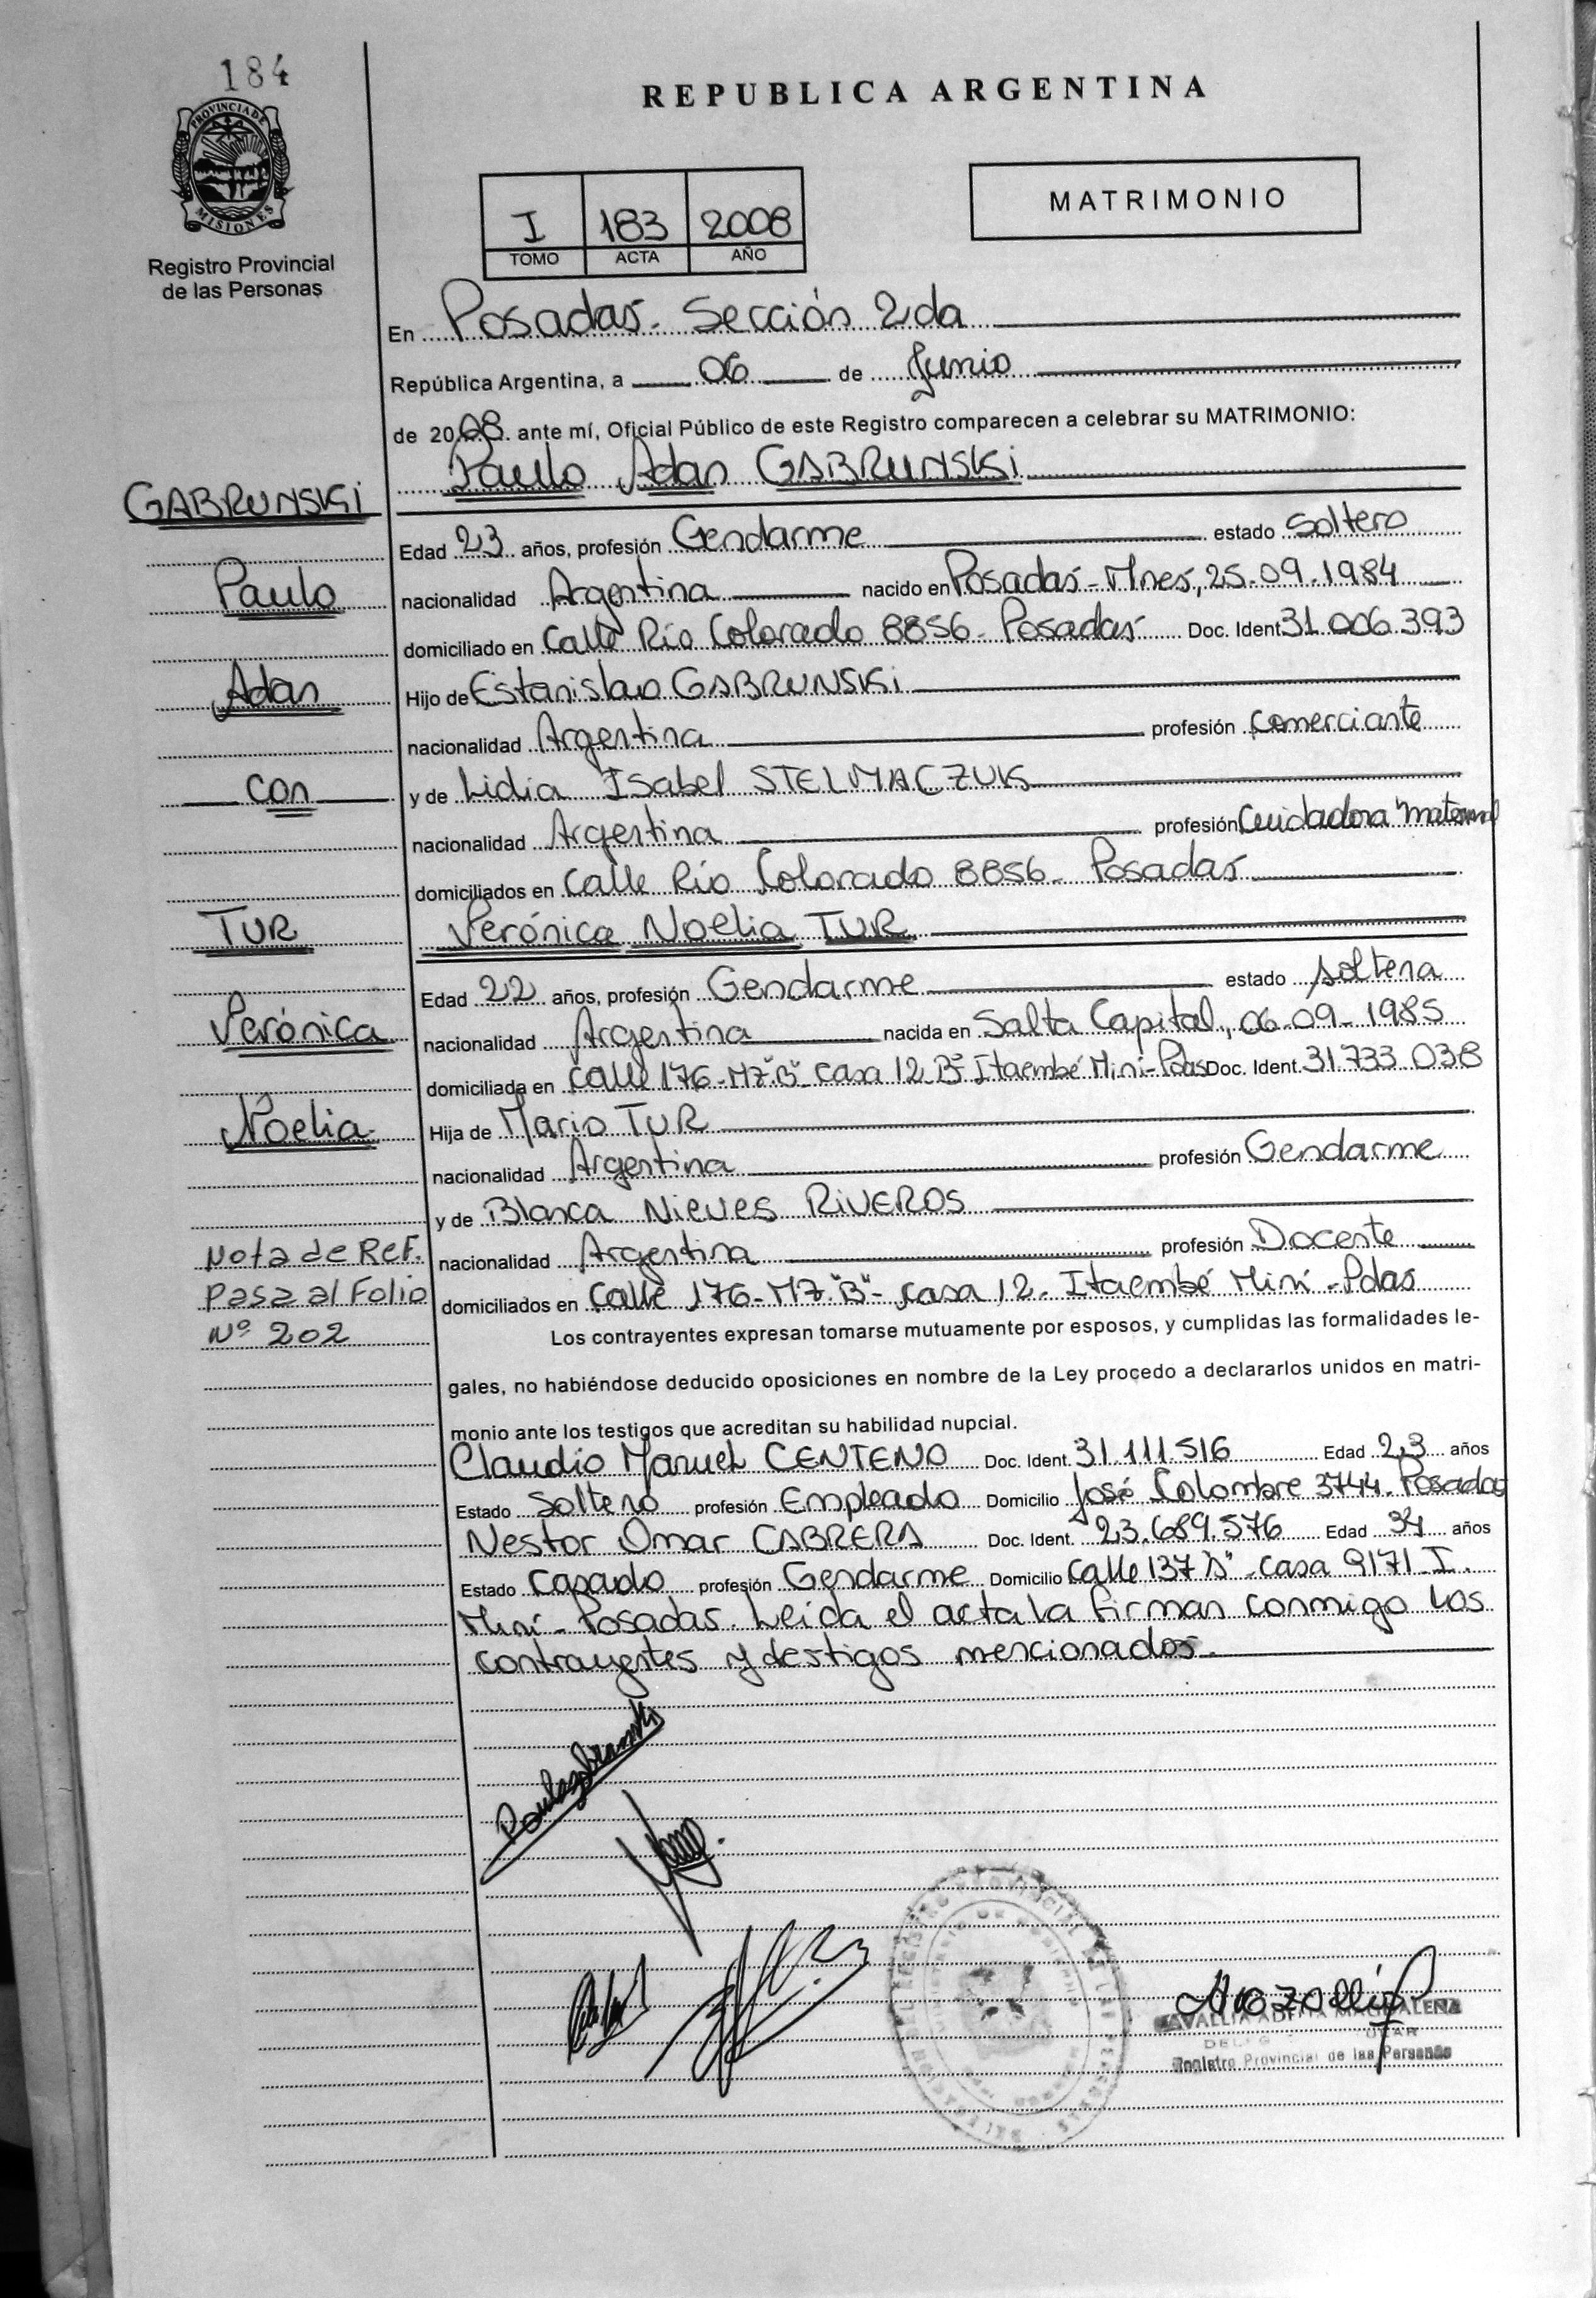 184
PROVINCIA DE
MISIONES
Registro Provincial
de las Personas
REPUBLICA ARGENTINA
I 183 2008
TOMO ACTA AÑO
MATRIMONIO
En Posadas - Sección 2da
República Argentina, a 06 de Junio
de 2008. ante mí, Oficial Público de este Registro comparecen a celebrar su MATRIMONIO:
Paulo Adan GABRUNSKI
GABRUNSKI
Edad 23 años, profesión Gendarme estado Soltero
Paulo
nacionalidad Argentina nacido en Posadas - Mnes, 25.09.1984
domiciliado en Calle Río Colorado 8856 - Posadas Doc. Ident 31.006.393
Adan
Hijo de Estanislao GABRUNSKI
nacionalidad Argentina profesión Comerciante
con
y de Lidia Isabel STELMACZUK
nacionalidad Argentina profesión Cuidadora maternal
domiciliados en Calle Río Colorado 8856 - Posadas
TUR
Verónica Noelia TUR
Edad 22 años, profesión Gendarme estado soltera
Verónica
nacionalidad Argentina nacida en Salta Capital, 06-09-1985
domiciliada en Calle 176-Mz."B" casa 12 Itaembé Miní-Pdas Doc. Ident. 31.733.038
Noelia
Hija de Mario TUR
nacionalidad Argentina profesión Gendarme
y de Blanca Nieves RIVEROS
Nota de Ref.
nacionalidad Argentina profesión Docente
Pasa al Folio
domiciliados en Calle 176-Mz."B"- casa 12 - Itaembé Miní - Pdas
Nº 202
Los contrayentes expresan tomarse mutuamente por esposos, y cumplidas las formalidades le-
gales, no habiéndose deducido oposiciones en nombre de la Ley procedo a declararlos unidos en matri-
monio ante los testigos que acreditan su habilidad nupcial.
Claudio Manuel CENTENO Doc. Ident. 31.111.516 Edad 23 años
Estado Soltero profesión Empleado Domicilio José Colombre 3744 - Posadas
Nestor Omar CABRERA Doc. Ident. 23.689.576 Edad 34 años
Estado Casado profesión Gendarme Domicilio Calle 137 casa 9171 I.
Miní - Posadas. Leída el acta la firman conmigo los
contrayentes y testigos mencionados.
MAGDALENA
Registro Provincial de las Personas